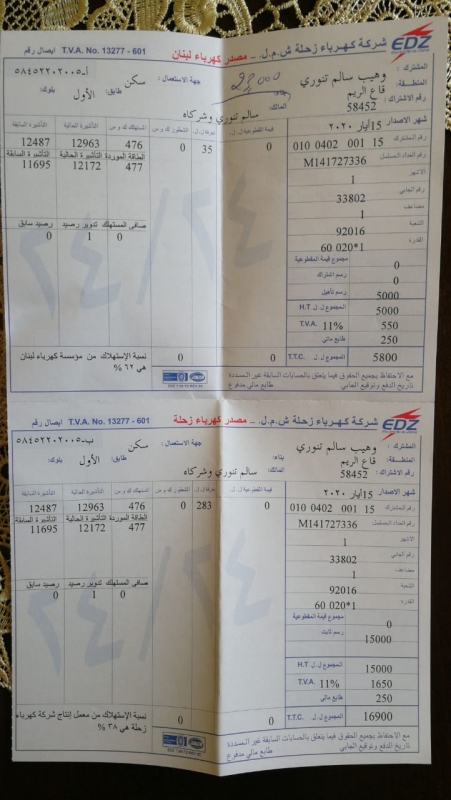 EDZ شركة كهرباء زحلة ش.م.ل. – مصدر كهرباء لبنان T.V.A. No. 13277 - 601 ايصال رقم
المشترك: وهيب سالم تنوري جهة الاستعمال: سكن أ-٥٨٤٥٢٢٠٢٠٠٥
22,000
المنطقة: قاع الريم بناء: طابق: الأول بلوك:
رقم الاشتراك: 58452 المالك: سالم تنوري وشركاه
شهر الاصدار 15 أيار ٢٠٢٠
التأشيرة السابقة التأشيرة الحالية استهلاك ك و س الشطور ك و س تعرفة ل.ل. قيمة القطوعية ل.ل.
12487 12963 476 0 35 0
رقم المشترك 15 001 0402 010
الطاقة الموردة التأشيرة الحالية التأشيرة السابقة
11695 12172 477
رقم العداد المتسلسل M141727336
الاشهر 1
رقم الجابي 33802
مضاعف 1
الشعبة 92016
القدرة 60 020*1
صافي المستهلك تدوير رصيد رصيد سابق
0 1 0
مجموع قيمة المقطوعية 0
رسم اشتراك 0
رسم تأهيل 5000
المجموع ل.ل. H.T 5000
T.V.A. 11% 550
طابع مالي 250
المجموع ل.ل. T.T.C. 5800
0 0
نسبة الإستهلاك من مؤسسة كهرباء لبنان هي ٦٢ %
مع الاحتفاظ بجميع الحقوق فيما يتعلق بالحسابات السابقة غير المسددة
تاريخ الدفع وتوقيع الجابي طابع مالي مدفوع
EDZ شركة كهرباء زحلة ش.م.ل. – مصدر كهرباء زحلة T.V.A. No. 13277 - 601 ايصال رقم
المشترك: وهيب سالم تنوري جهة الاستعمال: سكن ب-٥٨٤٥٢٢٠٢٠٠٥
المنطقة: قاع الريم بناء: طابق: الأول بلوك:
رقم الاشتراك: 58452 المالك: سالم تنوري وشركاه
شهر الاصدار 15 أيار ٢٠٢٠
التأشيرة السابقة التأشيرة الحالية استهلاك ك و س الشطور ك و س تعرفة ل.ل. قيمة القطوعية ل.ل.
12487 12963 476 0 283 0
رقم المشترك 15 001 0402 010
الطاقة الموردة التأشيرة الحالية التأشيرة السابقة
11695 12172 477
رقم العداد المتسلسل M141727336
الاشهر 1
رقم الجابي 33802
مضاعف 1
الشعبة 92016
القدرة 60 020*1
صافي المستهلك تدوير رصيد رصيد سابق
0 1 0
مجموع قيمة المقطوعية 0
رسم ثابت 15000
المجموع ل.ل. H.T 15000
T.V.A. 11% 1650
طابع مالي 250
المجموع ل.ل. T.T.C. 16900
0 0
نسبة الإستهلاك من معمل إنتاج شركة كهرباء زحلة هي ٣٨ %
مع الاحتفاظ بجميع الحقوق فيما يتعلق بالحسابات السابقة غير المسددة
تاريخ الدفع وتوقيع الجابي طابع مالي مدفوع